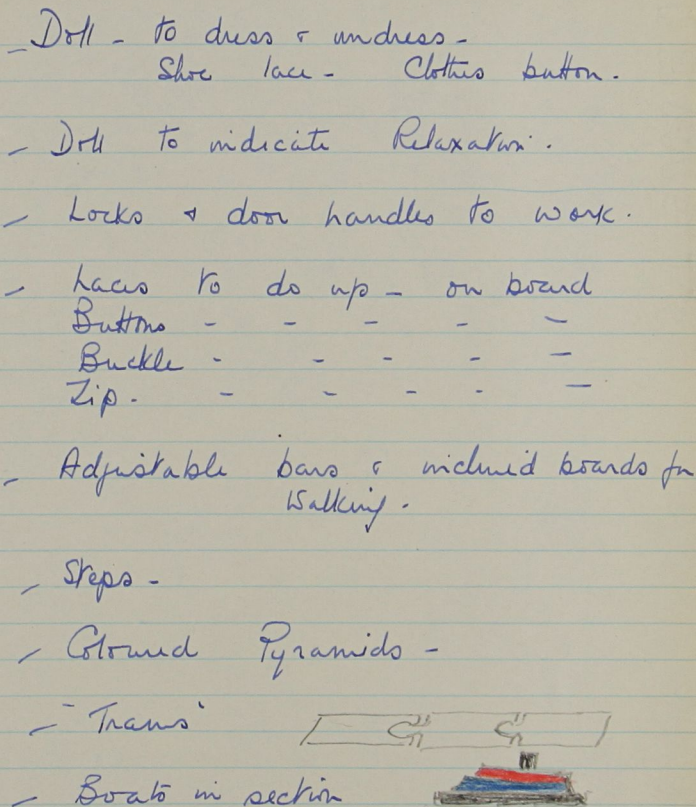 - Doll - to dress & undress -
Shoe lace - Clothes button.
- Doll to indicate Relaxation.
- Locks & door handles to work.
- Laces to do up - on board
Buttons - - - - -
Buckle - - - - -
Zip. - - - - -
- Adjustable bars & inclined boards for
Walking.
- Steps -
- Coloured Pyramids -
- "Trains"
- Boats in section